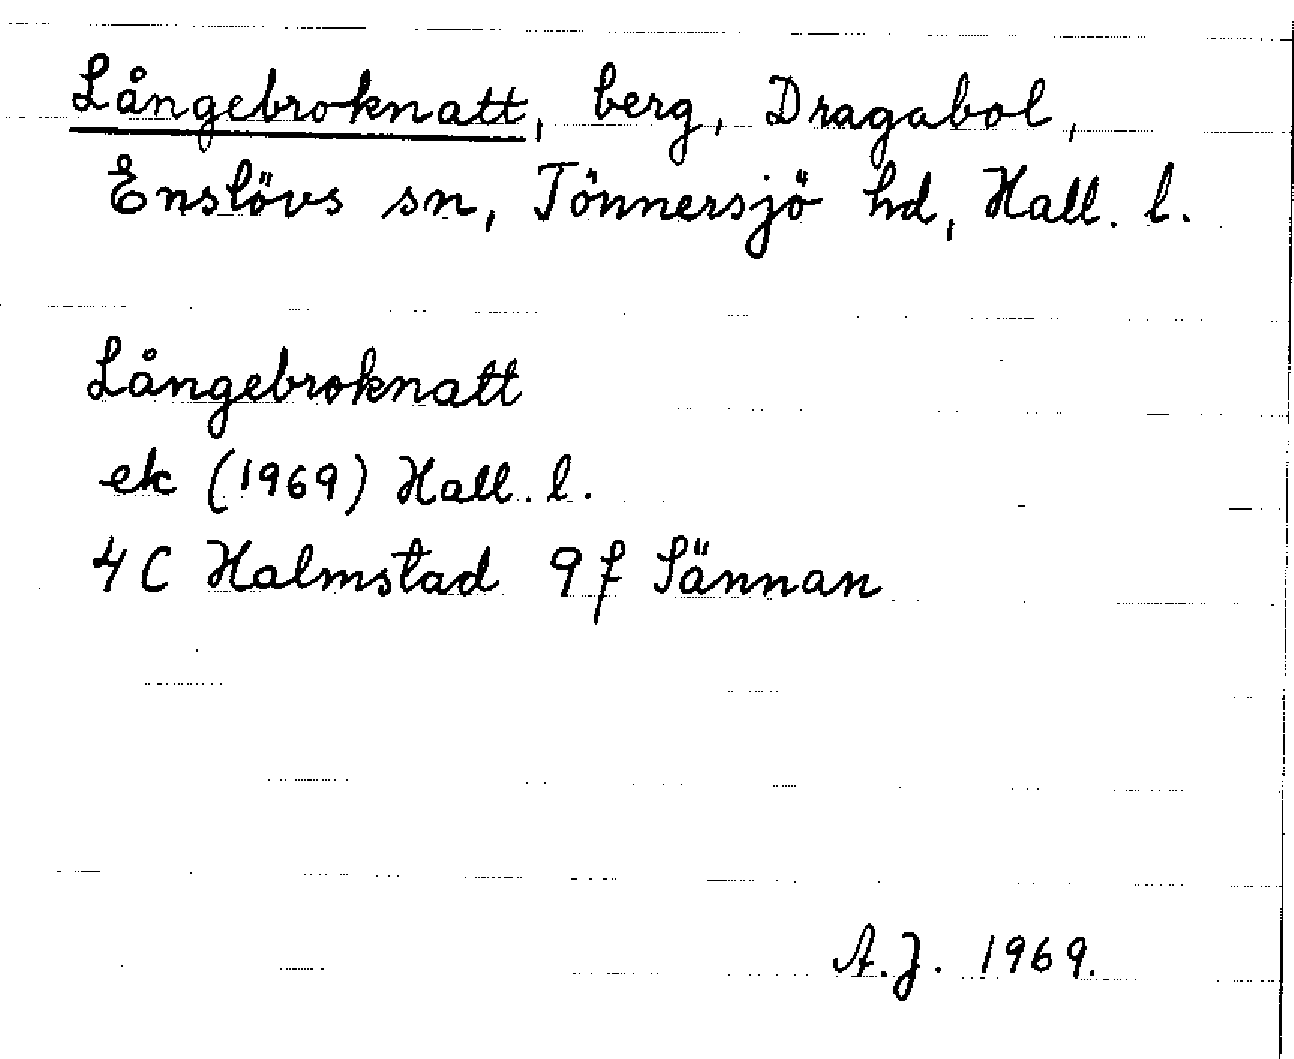 Långebroknatt, berg, Dragabol,
Enslövs sn, Tönnersjö hd, Hall. l.
Långebroknatt
ek (1969) Hall. l.
4C Halmstad 9f Sännan
A.J. 1969.